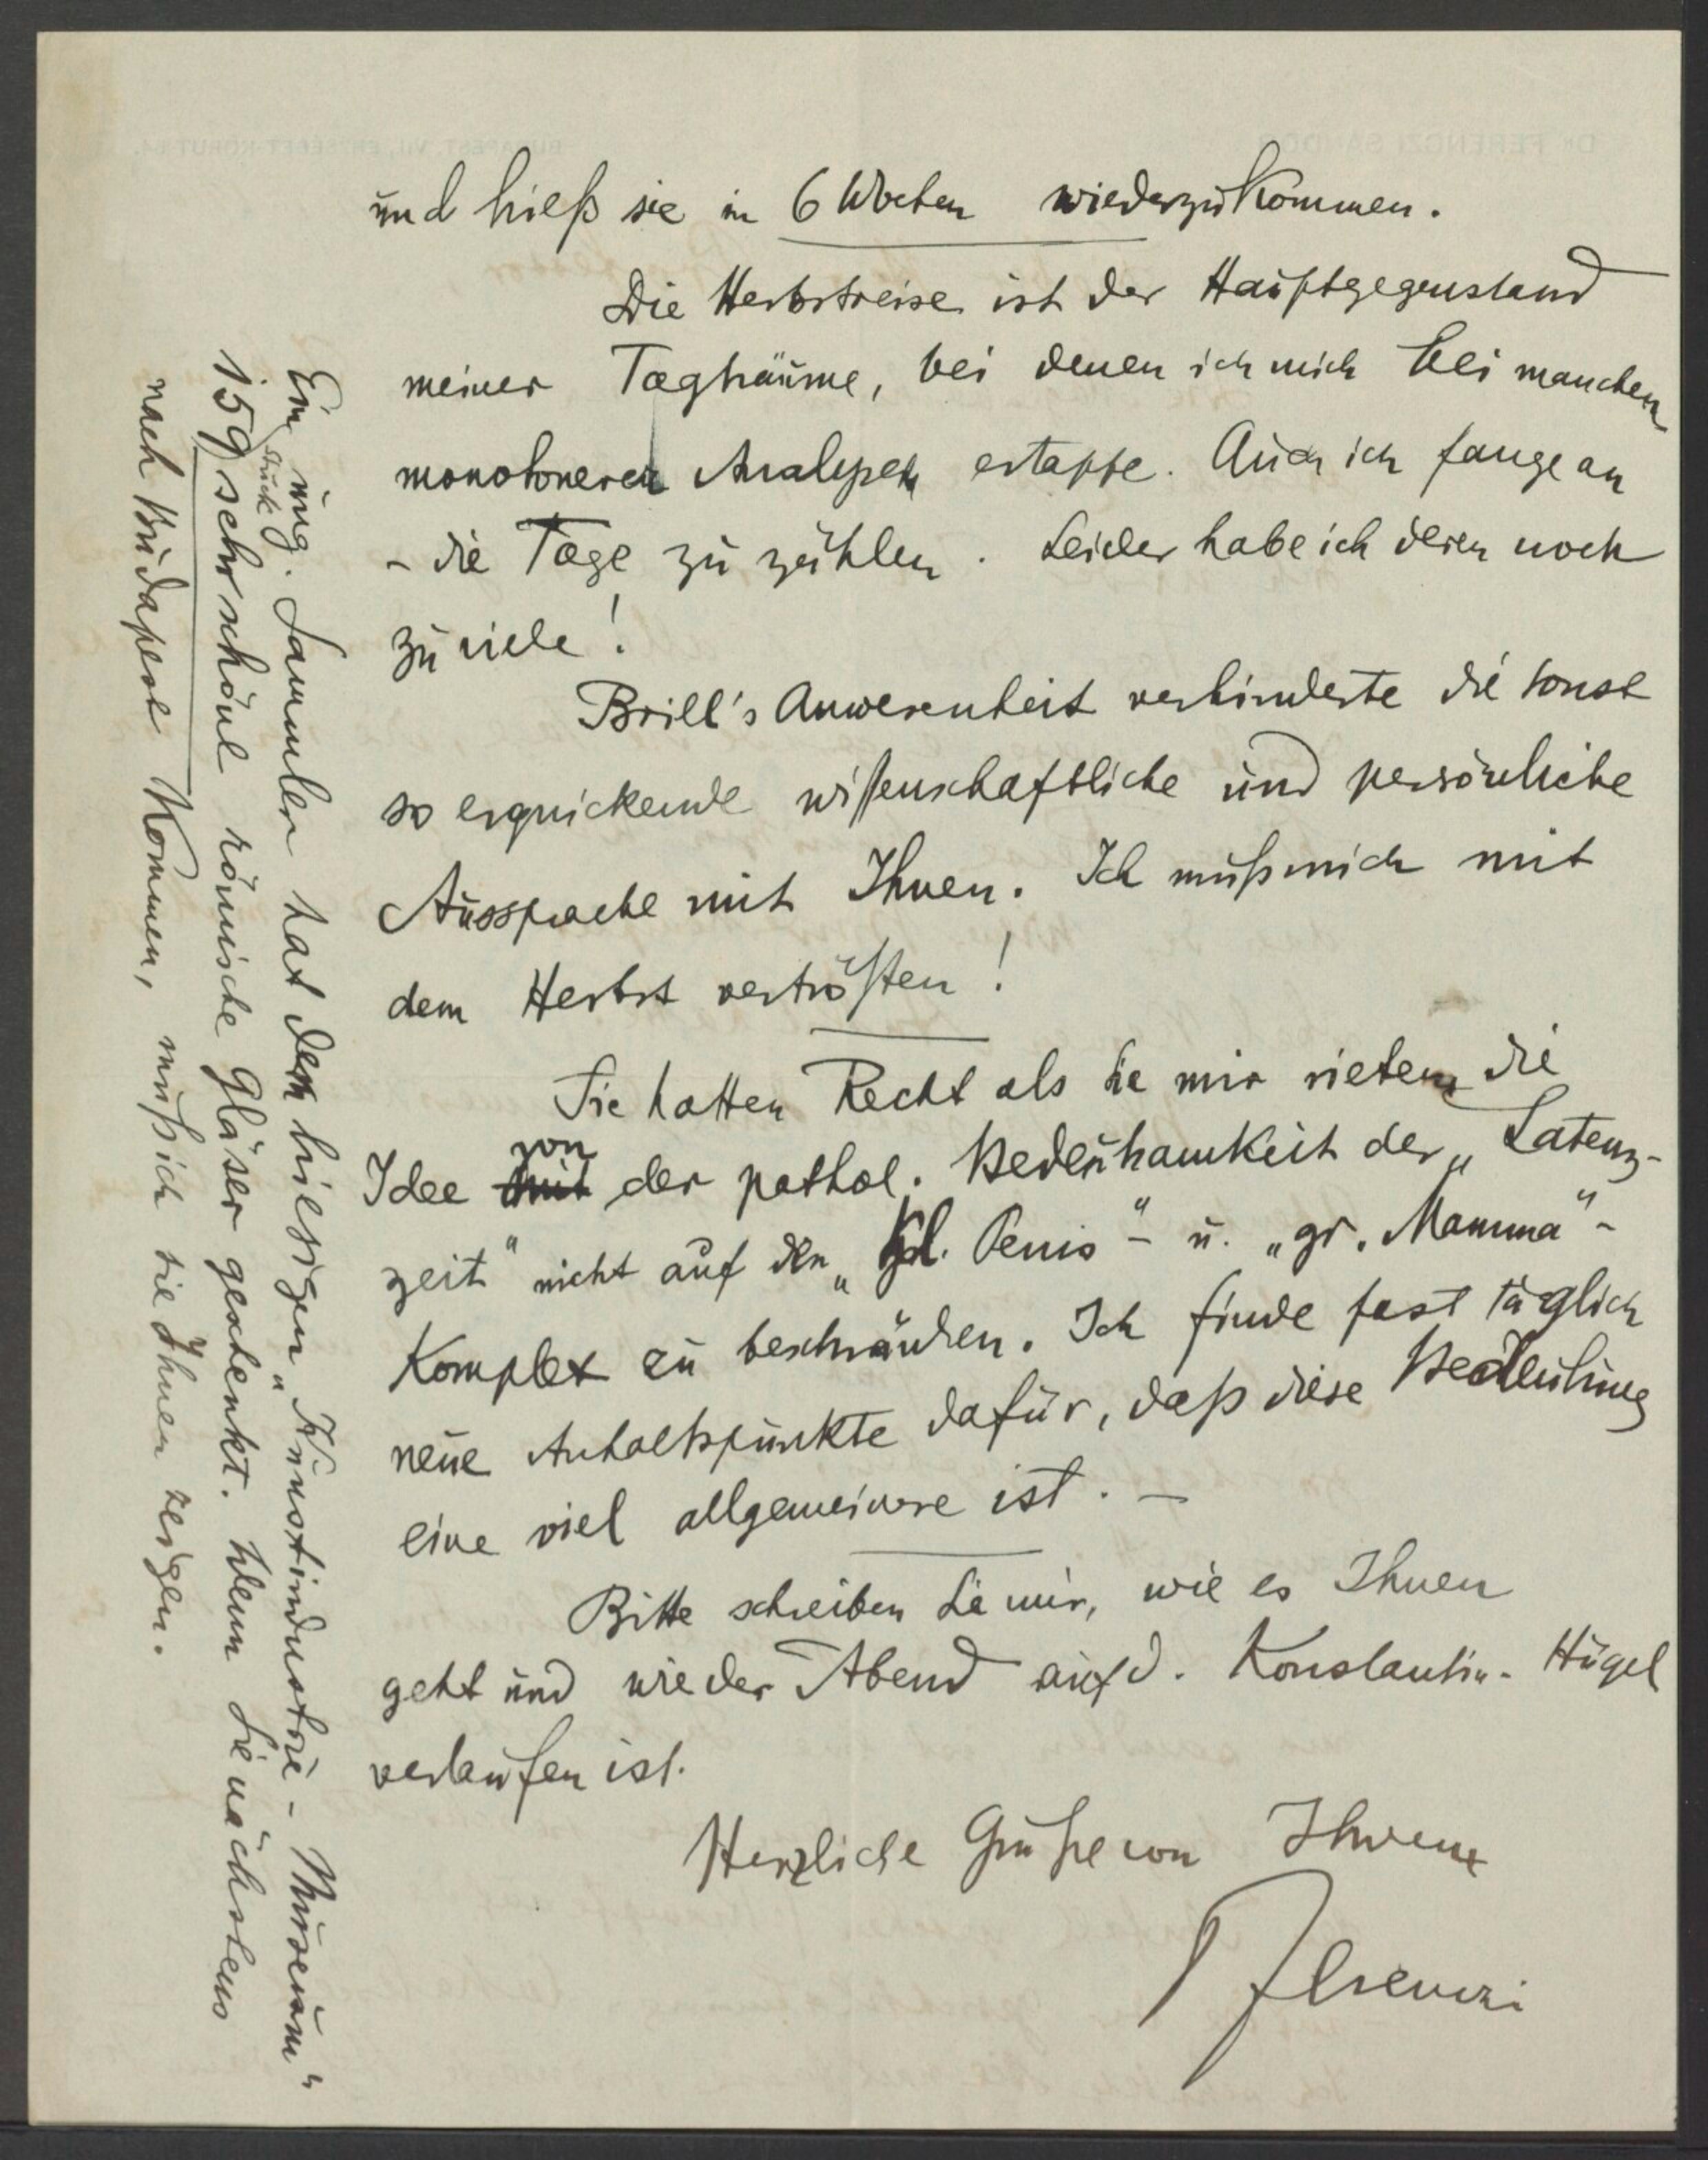 und hieß sie in 6 Wochen wiederzukommen.
Die Herbstreise ist der Hauptgegenstand
meiner Tagträume, bei denen ich mich bei manchen
monotoneren Analysen ertappe. Auch ich fange an
- die Tage zu zählen. Leider habe ich deren noch
zu viele!
Brill's Anwesenheit verhinderte die sonst
so erquickende wissenschaftliche und persönliche
Aussprache mit Ihnen. Ich muß mich mit
dem Herbst vertrösten!
Sie hatten Recht als Sie mir rieten die
Idee von der pathol. Bedeutsamkeit der „Latenz-
zeit“ nicht auf den „kl. Penis“- u. „gr. Mamma“-
Komplex zu beschränken. Ich finde fast täglich
neue Anhaltspunkte dafür, daß diese Bedeutung
eine viel allgemeinere ist. -
Bitte schreiben Sie mir, wie es Ihnen
geht und wie der Abend auf d. Konstantin-Hügel
verlaufen ist.
Herzliche Grüße von Ihrem
Ferenczi
Ein ung. Sammler hat dem hiesigen „Kunstindustrie-Museum“
159 Stück sehr schöne römische Gläser geschenkt. Wenn Sie nächstens
nach Budapest kommen, muß ich sie Ihnen zeigen.